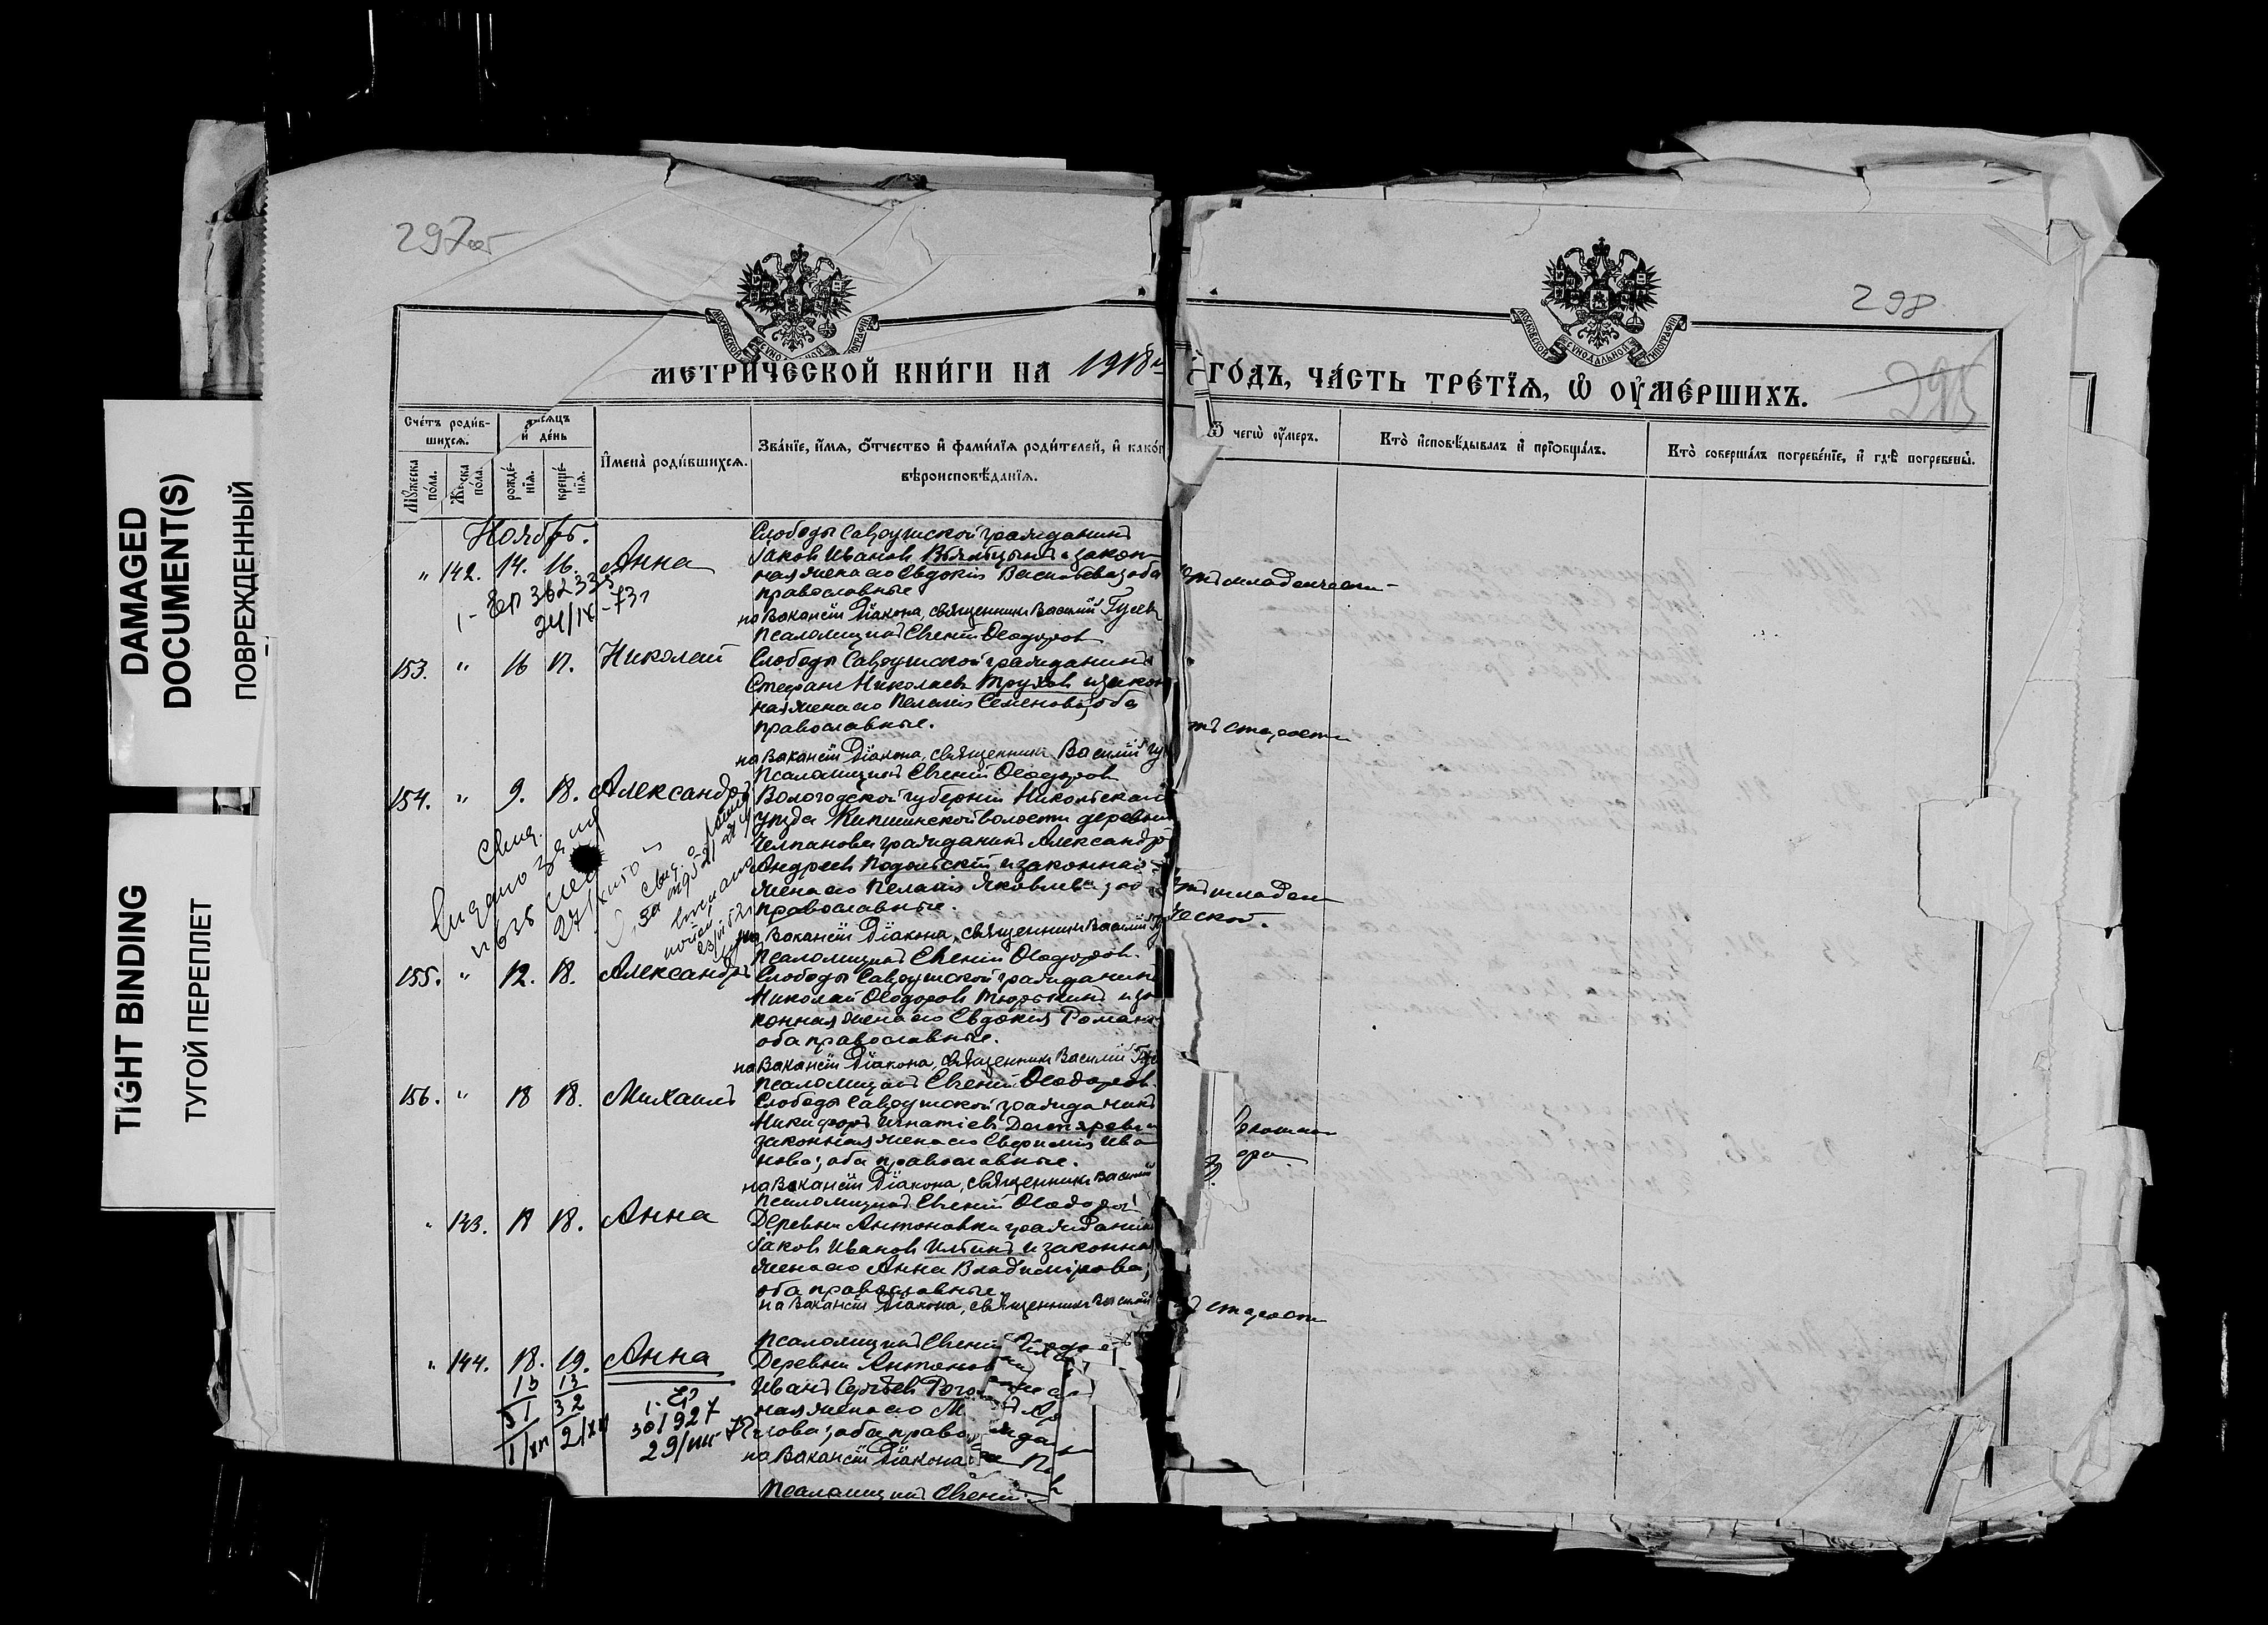 DAMAGED
DOCUMENT(S)
ПОВРЕЖДЕННЫЙ
TIGHT BINDING
ТУГОЙ ПЕРЕПЛЕТ
297об
МОСКОВСКОЙ СѴНОДАЛЬНОЙ ТИПОГРАФІИ
МЕТРИ́ЧЕСКОЙ КНИ́ГИ НА 1918й
Сче́тъ роди́в-
шихся.
мѣсяцъ
и҆ де́нь
Му́жеска
по́ла.
Же́нска
по́ла.
рожде́-
нїя.
креще́-
нїя.
И҆мена̀ роди́вшихся.
Зва́нїе, и҆́мя, о҆́тчество и҆ фами́лїя роди́телей, и҆ како́г
вѣроисповѣ́данїя.
Ноябрь.
" 142. 14. 16. Анна
Слободы Савроушской гражданинъ
Іаковъ Ивановъ и закон
ная жена его Евдокія Васильева; оба
православные
на Вакансіи Діакона, священникъ Василій Гусев
Псаломщикъ Евгеній Ѳеодоровъ
1 - ЕП 362335
24/IX-73г
153. " 16 17. Николай
Слободы Савроушской гражданинъ
Стефанъ Николаевъ Труховъ и закон
ная жена его Пелагія Семенова; оба
православные.
на Вакансіи Діакона, священникъ Василій Гу
Псаломщикъ Евгеній Ѳеодоровъ
154. " 9. 18. Александръ
Вологодской губерніи Никольскаго
уѣзда Кипшинской волости деревни
Челпанова гражданинъ Александръ
Андреевъ Подольскій и законная
жена его Пелагія Яковлева; об
православные.
на Вакансіи Діакона, священникъ Василій Гу
Псаломщикъ Евгеній Ѳеодоровъ.
Свид.
Выдано за №
155. " 12. 18. Александръ
Слободы Савроушской гражданинъ
Николай Ѳеодоровъ Тюрькинъ и за
конная жена его Евдокія Роман
оба православные.
на Вакансіи Діакона, священникъ Василій Гус
Псаломщикъ Евгеній Ѳеодоровъ.
156. " 18 18. Михаилъ
Слободы Савроушской гражданинъ
Никифоръ Игнатіевъ Дегтяревъ и
законная жена его Евфимія Ива
нова; оба православные.
на Вакансіи Діакона, священникъ Василій
Псаломщикъ Евгеній Ѳеодоровъ
" 143. 17 18. Анна
Деревни Антоновки гражданинъ
Іаковъ Ивановъ Ильинъ и законная
жена его Анна Владимірова;
оба православные.
на Вакансіи Діакона, священникъ Василій
Псаломщикъ Евгеній
" 144. 18. 19. Анна
Деревни Антонов
Иванъ Сергѣевъ
ная жена его М
лова; оба право
на Вакансіи Діакона
Псаломщикъ Евгеній
13 13
31 32
1/XII 2/XII
301927
29/VIII
298
295
МОСКОВСКОЙ СѴНОДАЛЬНОЙ ТИПОГРАФІИ
ГО́ДЪ, ЧА́СТЬ ТРЕ́ТЇЯ, Ѡ҆ ОУ҆МЕ́РШИХЪ.
Ѿ чегѡ̀ оу҆́меръ.
Кто̀ и҆сповѣ́дывалъ и҆ прїѡбща́лъ.
Кто̀ соверша́лъ погребе́нїе, и҆ гдѣ̀ погребены̀.
отъ младенческ
тъ старости
отъ младен
ческой.
ъ старости